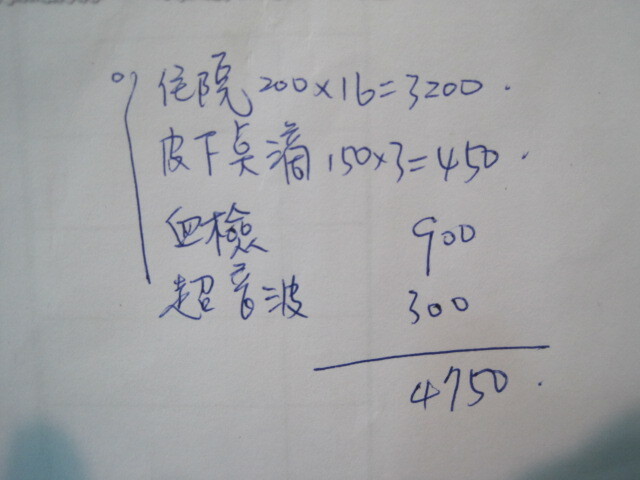 住院 200×16=3200.
皮下點滴 150×3=450.
血檢 900
超音波 300
4750.